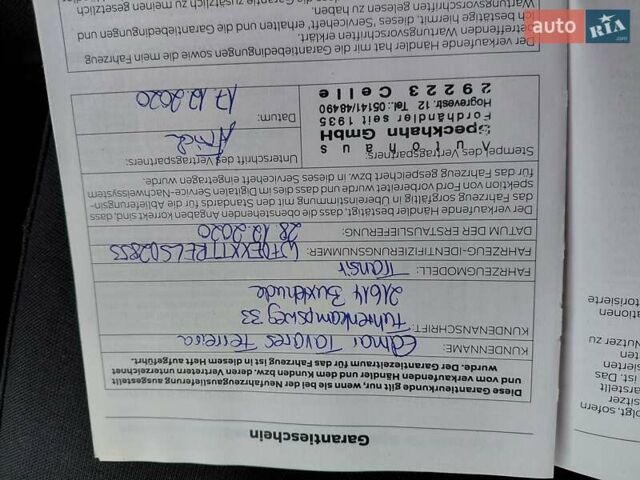 Garantieschein
Diese Garantieurkunde gilt nur, wenn sie bei der Neufahrzeugauslieferung ausgestellt
und vom verkaufenden Händler und dem Kunden bzw. deren Vertretern unterzeichnet
wurde. Der Garantiezeitraum für das Fahrzeug ist in diesem Heft aufgeführt.
KUNDENNAME: Edmar Tavares Ferreira
KUNDENANSCHRIFT: 33
21614 Buxtehude
FAHRZEUGMODELL: Transit
FAHRZEUG-IDENTIFIZIERUNGSNUMMER:
DATUM DER ERSTAUSLIEFERUNG: 28.12.2020
Der verkaufende Händler bestätigt, dass die obenstehenden Angaben korrekt sind, dass
das Fahrzeug sorgfältig in Übereinstimmung mit den Standards für die Ablieferungsin-
spektion von Ford vorbereitet wurde und dass dies im Digitalen Service-Nachweissystem
für das Fahrzeug gespeichert bzw. in dieses Serviceheft eingetragen wurde.
Stempel des Vertragspartners:
Unterschrift des Vertragspartners:
Autohaus
Speckhahn GmbH
Fordhändler seit 1935
Hogrevestr. 12 Tel.: 05141/48490
29223 Celle
Datum:
17.12.2020
Der verkaufende Händler hat mir die Garantiebedingungen sowie die mein Fahrzeug
betreffenden Wartungsvorschriften erklärt.
Ich bestätige hiermit, dieses Serviceheft, erhalten und die Garantiebedingungen und
Wartungsvorschriften gelesen zu haben.
zusätzlich zu meinen gesetzlich
olgt, sofern
sitzer
arstellt
ist. Das
sierten
Nutzer zu
ationen
torisierte
auto RIA.com